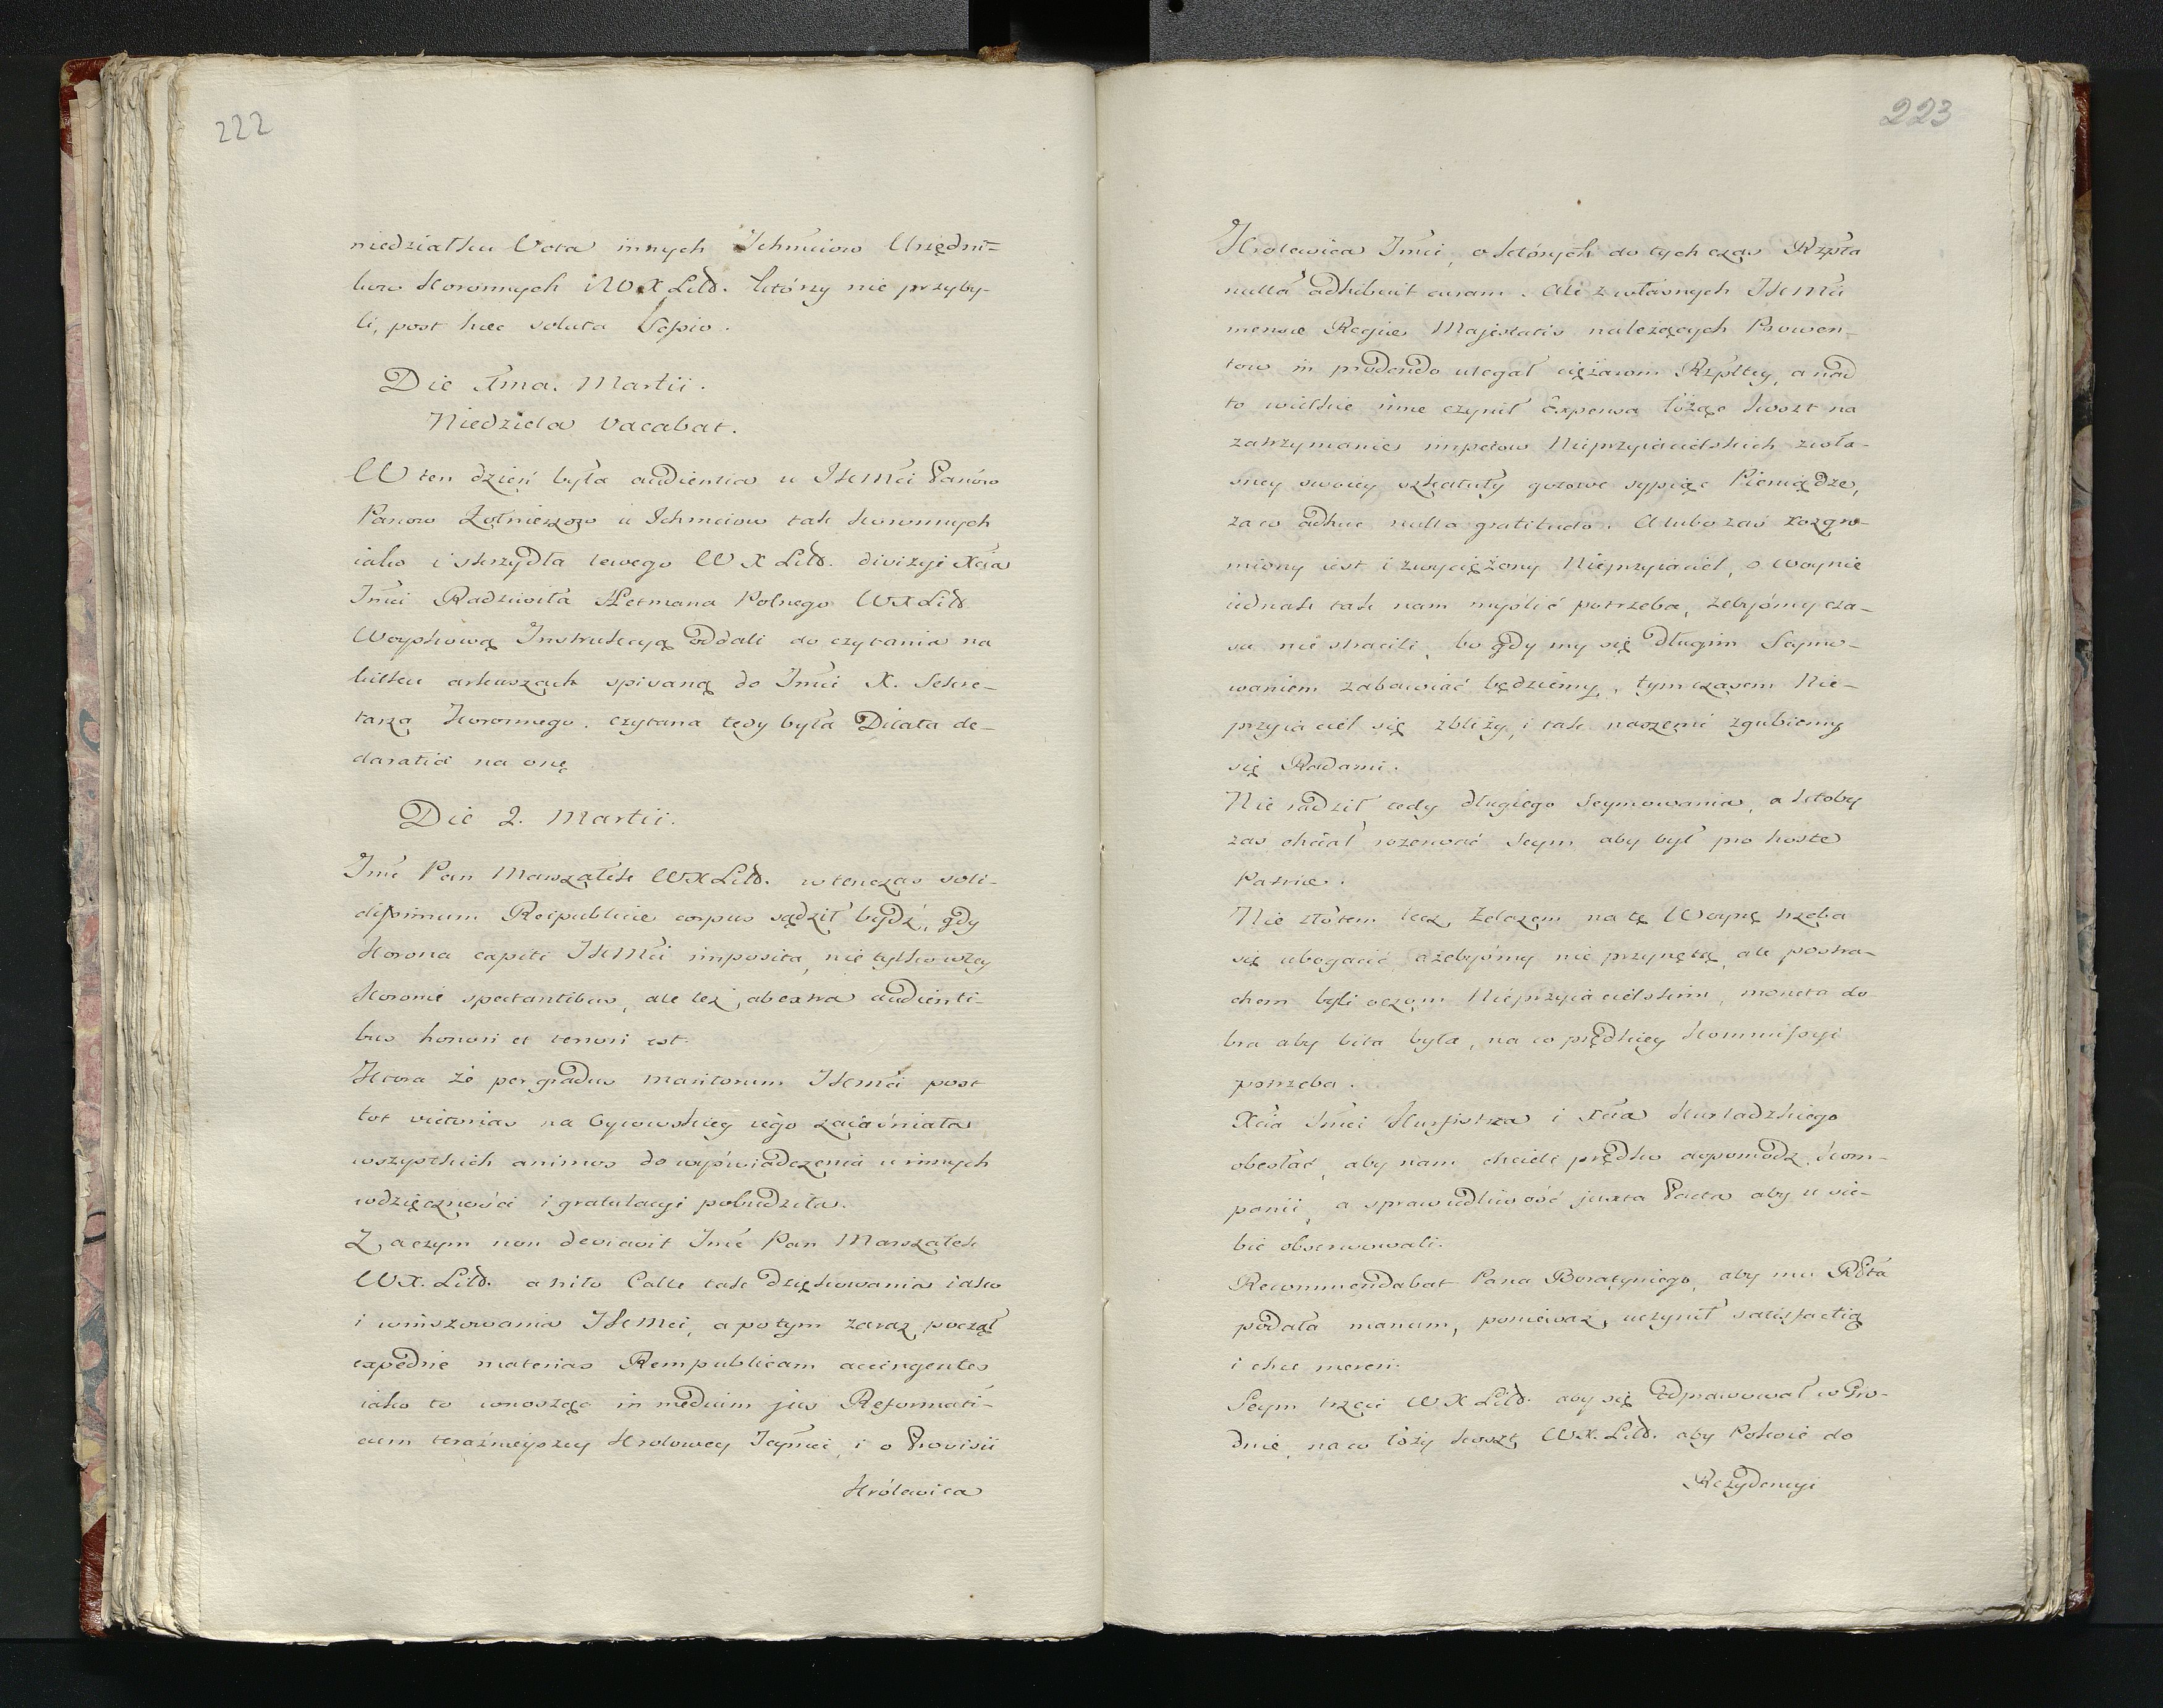 222
niedziałku Vota innych Ichmciow Urzędni=
kow Koronnych i W X Litt. którzy nie przyby-
li, post hec soluta Sessio.
Die 1ma. Martii.
Niedziela vacabat.
W ten dzień była audientia u JKMci Panów
Panow Żołnierzow u Ichmciow tak koronnych
iako i skrzydła lewego W X Litt. divizyi Xcia
Jmci Radziwiła Hetmana Polnego WXLitt
Woyskową Instrukcyą oddali do czytania na
kilku arkuszach spisaną do Jmci X. Sekre-
tarza Koronnego. czytana tedy była Dilata de-
claratia na onę
Die 2. Martii.
Jmć Pan Marszałek WXLitt. wtenczas soli-
dissimum Reipublicæ corpus sądził bydź, gdy
Korona capiti JKMci imposita, nie tylko wley
Koronie spectantibus, ale też ab extra audienti-
bus honori et terrori est.
Ktora że per gradus maritorum JKmci post
tot victorias na Oycowskiey iego zaiaśniała
wszystkich animos do wyświadczenia u innych
wdzięczności i gratulacyi pobudziła.
Zaczym non deviavit Jmć Pan Marszałek
WX. Litt. a hito Calle tak dziękowania iako
i winszowania JKMci, a potym zaraz począł
expedire materias Rempublicam accingentes
iako to wnosząc in medium jus Reformati-
cum teraźnieyszey Krolowey Jeymci, i o Provisii
Królewica
223
Krolewica Jmci, o których do tych czas Rzpta
nulla adhibuit curam. Ale z własnych JKMci
mensæ Regiæ Majestatis należących Prowen-
tow in prudendo ulegał ciężarom Rzpltey, a nad
to wielkie inne czynił Expensa łożąc koszt na
zatrzymanie impetow Nieprzyiacielskich z wła-
sney swoiey szkatuły gotowe sypiąc Pieniądze,
za co adhuc nulla gratitudo. A lubo zaś rozgro-
miony iest i zwyciężony Nieprzyiaciel, o Woynie
iednak tak nam myślić potrzeba, żebyśmy cza-
su nie stracili, bo gdy my się długim Seymo-
waniem zabawiać będziemy, tym czasem Nie-
przyiaciel się zbliży, i tak naszemi zgubiemy
się Radami.
Nie radził tedy długiego Seymowania, a ktoby
zas chciał rozerwać Seym aby był pro hoste
Patriæ.
Nie złotem lecz żelazem na tę Woynę trzeba
się ubogacić ażebyśmy nie przynętą, ale postra-
chem byli oczom Nieprzyiacielskim, moneta do
bra aby bita była, na co prędkiey Kommissyi
potrzeba.
Xcia Jmci Kurfistrza i Xcia Kurladzkiego
obesłać, aby nam chcieli prędko dopomodz Kom-
panii, a sprawiedliwość juxta Pacta aby u sie-
bie obserwowali.
Recommendabat Pana Boratyniego, aby mu Rzta
podała manum, ponieważ uczynił satisfactią
i chce mereri.
Seym trzeci W X Litt. aby się odprawował w Gro-
dnie, na co łoży koszt WX. Litt. aby Pokoie do
Rezydencyi